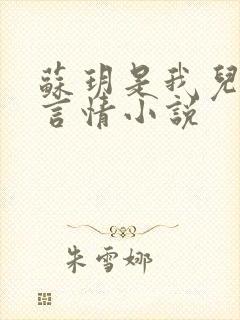 蘇玥是我兒
言情小説
朱雪娜